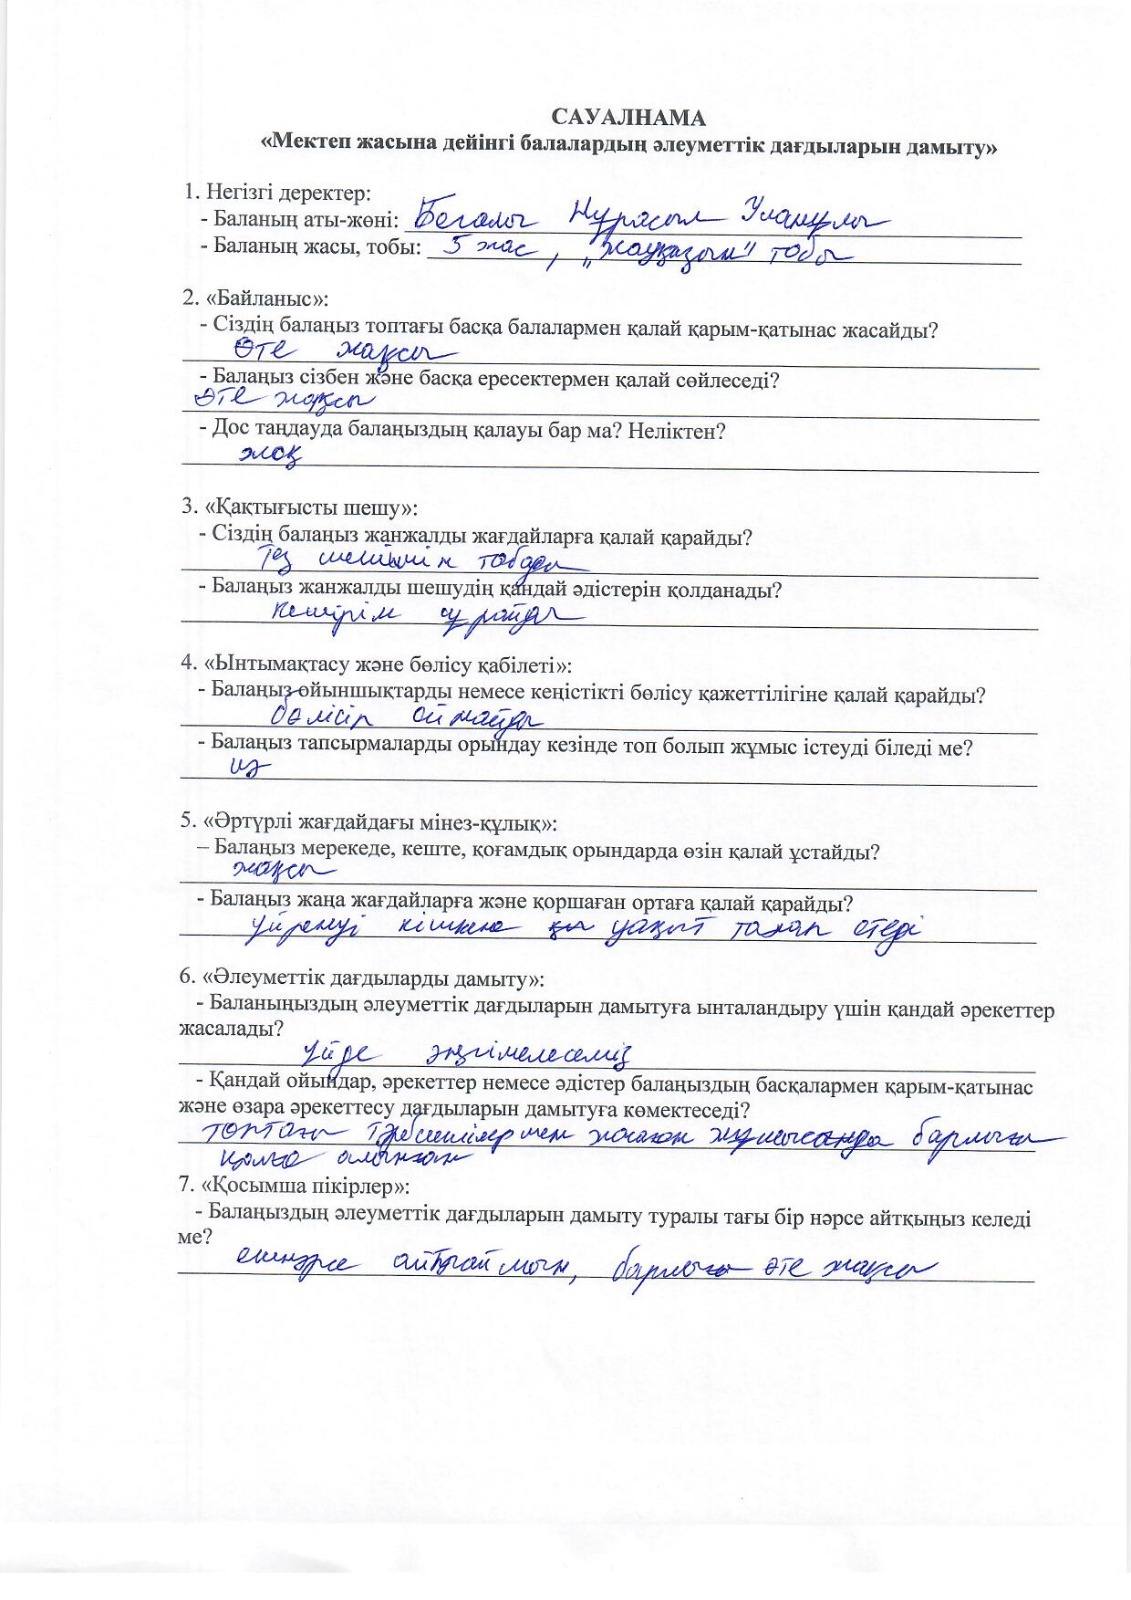 САУАЛНАМА
«Мектеп жасына дейінгі балалардың әлеуметтік дағдыларын дамыту»
1. Негізгі деректер:
- Баланың аты-жөні: Бегалы Нұрасыл Уланұлы
- Баланың жасы, тобы: 5 жас, „жауқазын" тобы
2. «Байланыс»:
- Сіздің балаңыз топтағы басқа балалармен қалай қарым-қатынас жасайды?
Өте жақсы
- Балаңыз сізбен және басқа ересектермен қалай сөйлеседі?
Өте жақсы
- Дос таңдауда балаңыздың қалауы бар ма? Неліктен?
жоқ
3. «Қақтығысты шешу»:
- Сіздің балаңыз жанжалды жағдайларға қалай қарайды?
Тез шешімін табады
- Балаңыз жанжалды шешудің қандай әдістерін қолданады?
Кешірім сұрайды
4. «Ынтымақтасу және бөлісу қабілеті»:
- Балаңыз ойыншықтарды немесе кеңістікті бөлісу қажеттілігіне қалай қарайды?
бөлісіп ойнайды
- Балаңыз тапсырмаларды орындау кезінде топ болып жұмыс істеуді біледі ме?
иә
5. «Әртүрлі жағдайдағы мінез-құлық»:
– Балаңыз мерекеде, кеште, қоғамдық орындарда өзін қалай ұстайды?
жақсы
- Балаңыз жаңа жағдайларға және қоршаған ортаға қалай қарайды?
Үйренуі кішкене уақыт талап етеді
6. «Әлеуметтік дағдыларды дамыту»:
- Баланыңыздың әлеуметтік дағдыларын дамытуға ынталандыру үшін қандай әрекеттер
жасалады?
Үйде әңгімелесеміз
- Қандай ойындар, әрекеттер немесе әдістер балаңыздың басқалармен қарым-қатынас
және өзара әрекеттесу дағдыларын дамытуға көмектеседі?
топтағы тәрбиешілермен жасаған жұмысында барлығы
қолға алынған
7. «Қосымша пікірлер»:
- Балаңыздың әлеуметтік дағдыларын дамыту туралы тағы бір нәрсе айтқыңыз келеді
ме?
ешнәрсе айтпаймын, барлығы өте жақсы